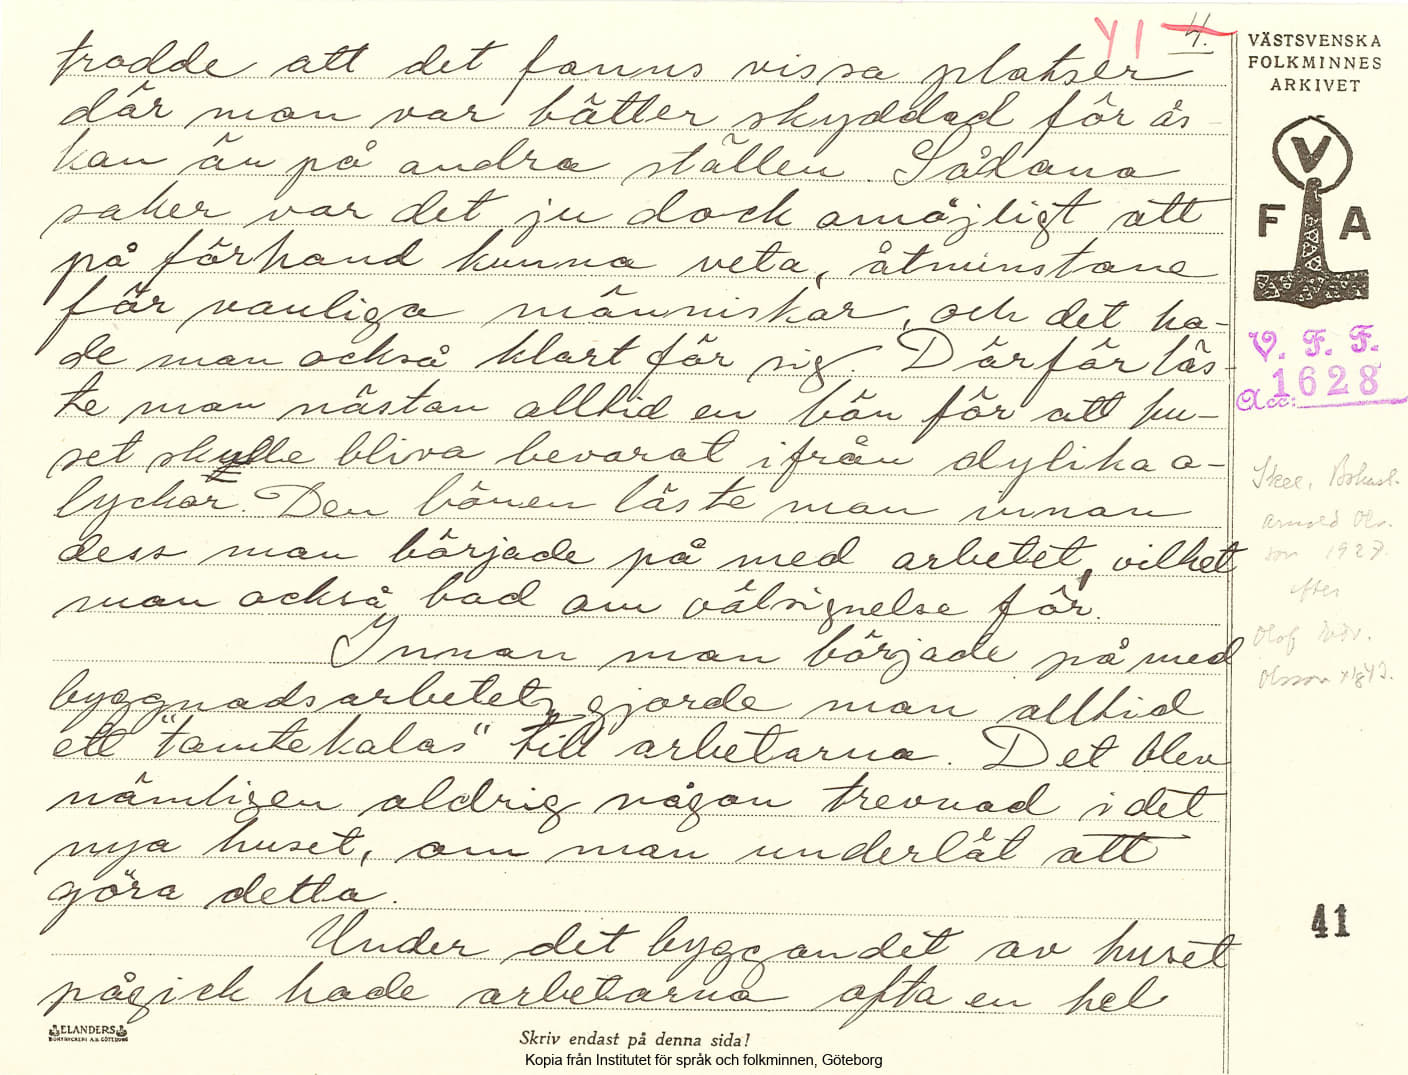 YI 4.
trodde att det fanns vissa platser
där man var bätter skyddad för ås-
kan än på andra ställen. Sådana
saker var det ju dock omöjligt att
på förhand kunna veta, åtminstone
för vanliga människor, och det ha-
de man också klart för sig. Därför läs-
te man nästan alltid en bön för att hu-
set skulle bliva bevarat ifrån dylika o-
lyckor. Den bönen läste man innan
dess man började på med arbetet, vilket
man också bad om välsignelse för.
Innan man började på med
byggnadsarbetet, gjorde man alltid
ett "tomtekalas" till arbetarna. Det blev
nämligen aldrig någon trevnad i det
nya huset, om man underlät att
göra detta.
Under det byggandet av huset
pågick hade arbetarna ofta en hel
VÄSTSVENSKA
FOLKMINNES
ARKIVET
V
F A
V. F. F.
Acc: 1628
Skee, Bohusl.
Arnold Ols-
son 1927.
efter
Olof
Olsson
41
ELANDERS
BOKTRYCKERI A.B. GÖTEBORG
Skriv endast på denna sida!
Kopia från Institutet för språk och folkminnen, Göteborg